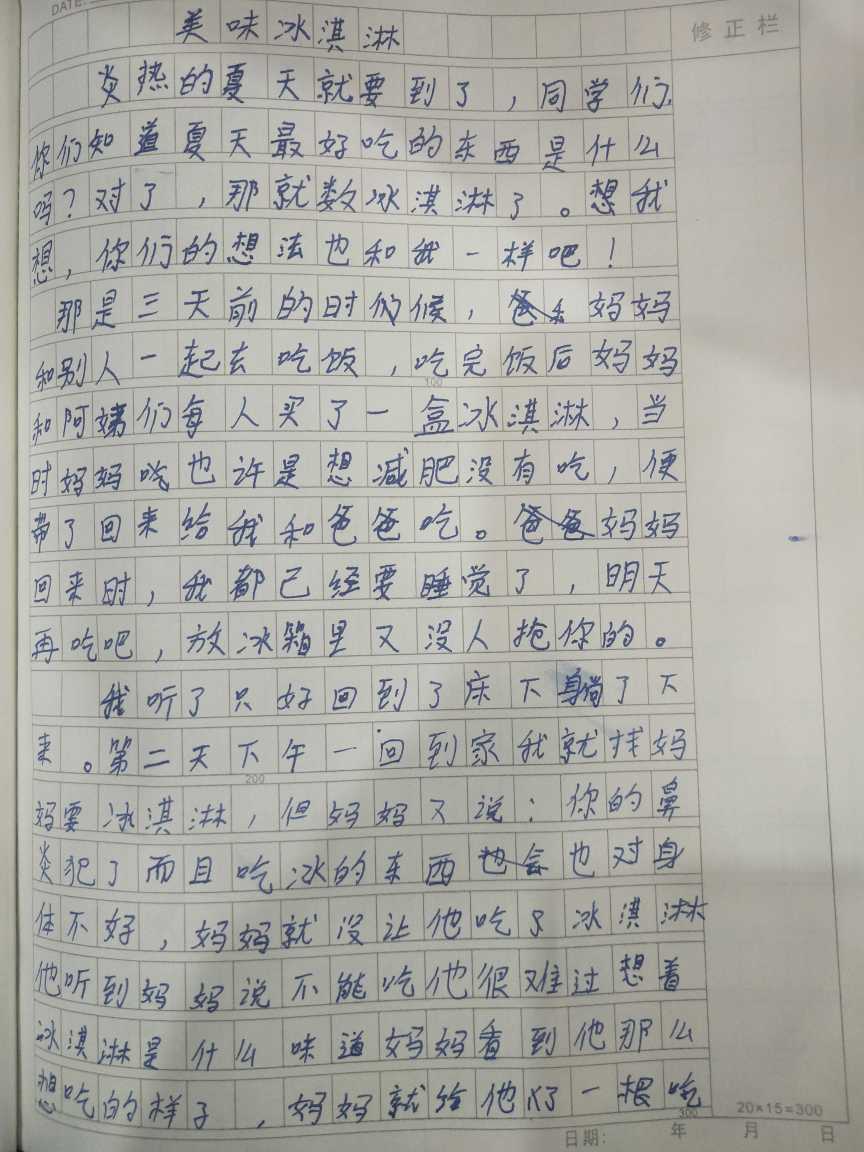 DATE:
修正栏
美味冰淇淋
炎热的夏天就要到了，同学们，
你们知道夏天最好吃的东西是什么
吗？对了，那就数冰淇淋了。想我
想，你们的想法也和我一样吧！
那是三天前的时候，妈妈
和别人一起去吃饭，吃完饭后妈妈
100
和阿姨们每人买了一盒冰淇淋，当
时妈妈吃也许是想减肥没有吃，便
带了回来给我和爸爸吃。妈妈
回来时，我都已经要睡觉了，明天
再吃吧，放冰箱里又没人抢你的。
我听了只好回到了床下躺了下
来。第二天下午一回到家我就找妈
200
妈要冰淇淋，但妈妈又说：你的鼻
炎犯了而且吃冰的东西也对身
体不好，妈妈就没让他吃冰淇淋
他听到妈妈说不能吃他很难过想着
冰淇淋是什么味道妈妈看到他那么
想吃的样子，妈妈就给他一根吃
300
20×15=300
日期： 年 月 日